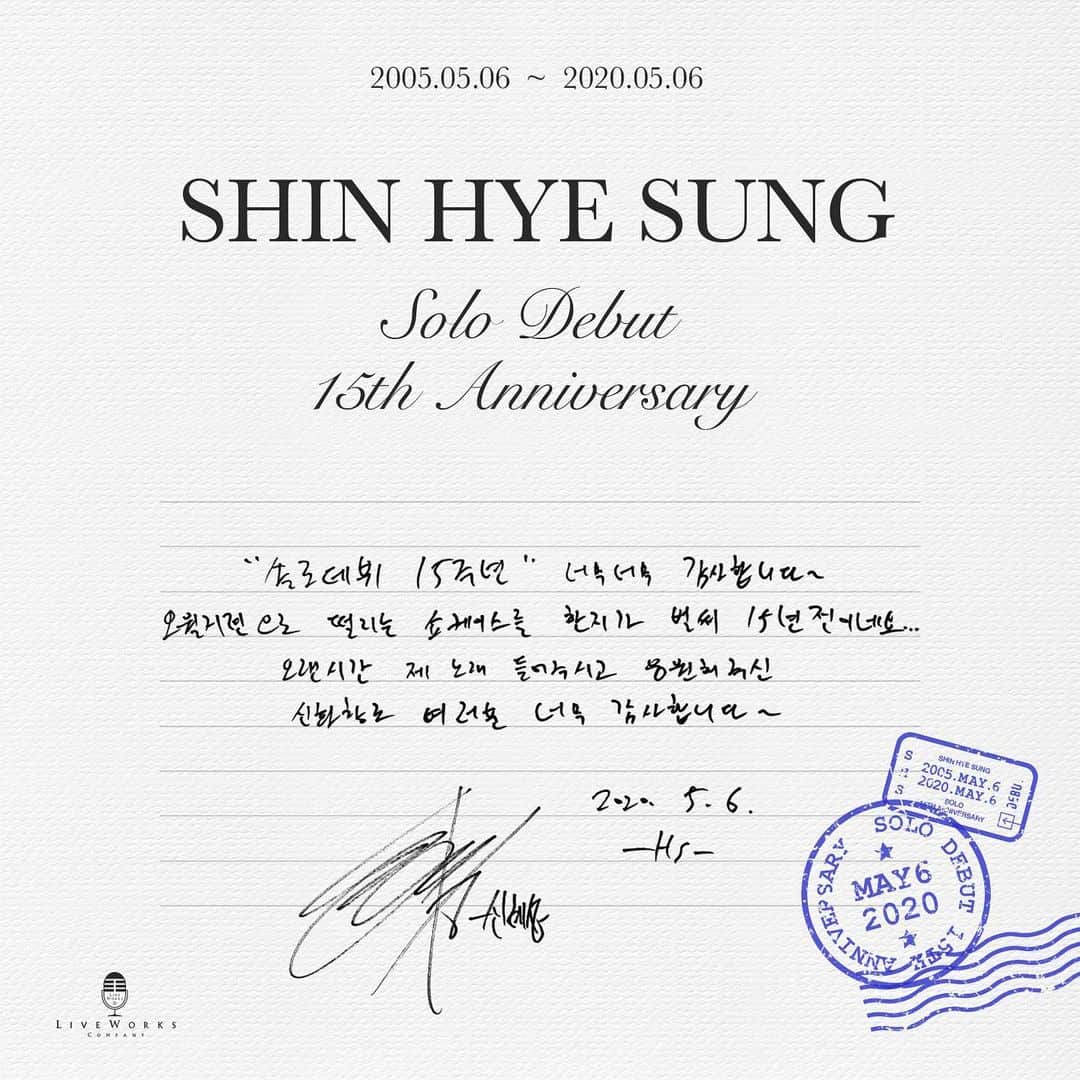 2005.05.06 ~ 2020.05.06
SHIN HYE SUNG
Solo Debut
15th Anniversary
"솔로데뷔 15주년" 너무너무 감사합니다~
오월지련으로 떨리는 쇼케이스를 한지가 벌써 15년전이네요...
오랜시간 제 노래 들어주시고 응원해주신
신화창조 여러분 너무 감사합니다~
2020. 5. 6.
-HS-
신혜성
SHIN HYE SUNG
2005.MAY.6
2020.MAY.6
SOLO
15TH ANNIVERSARY
DEBU.
S H S
SOLO DEBUT 15TH ANNIVERSARY
MAY 6
2020
LIVEWORKS
COMPANY